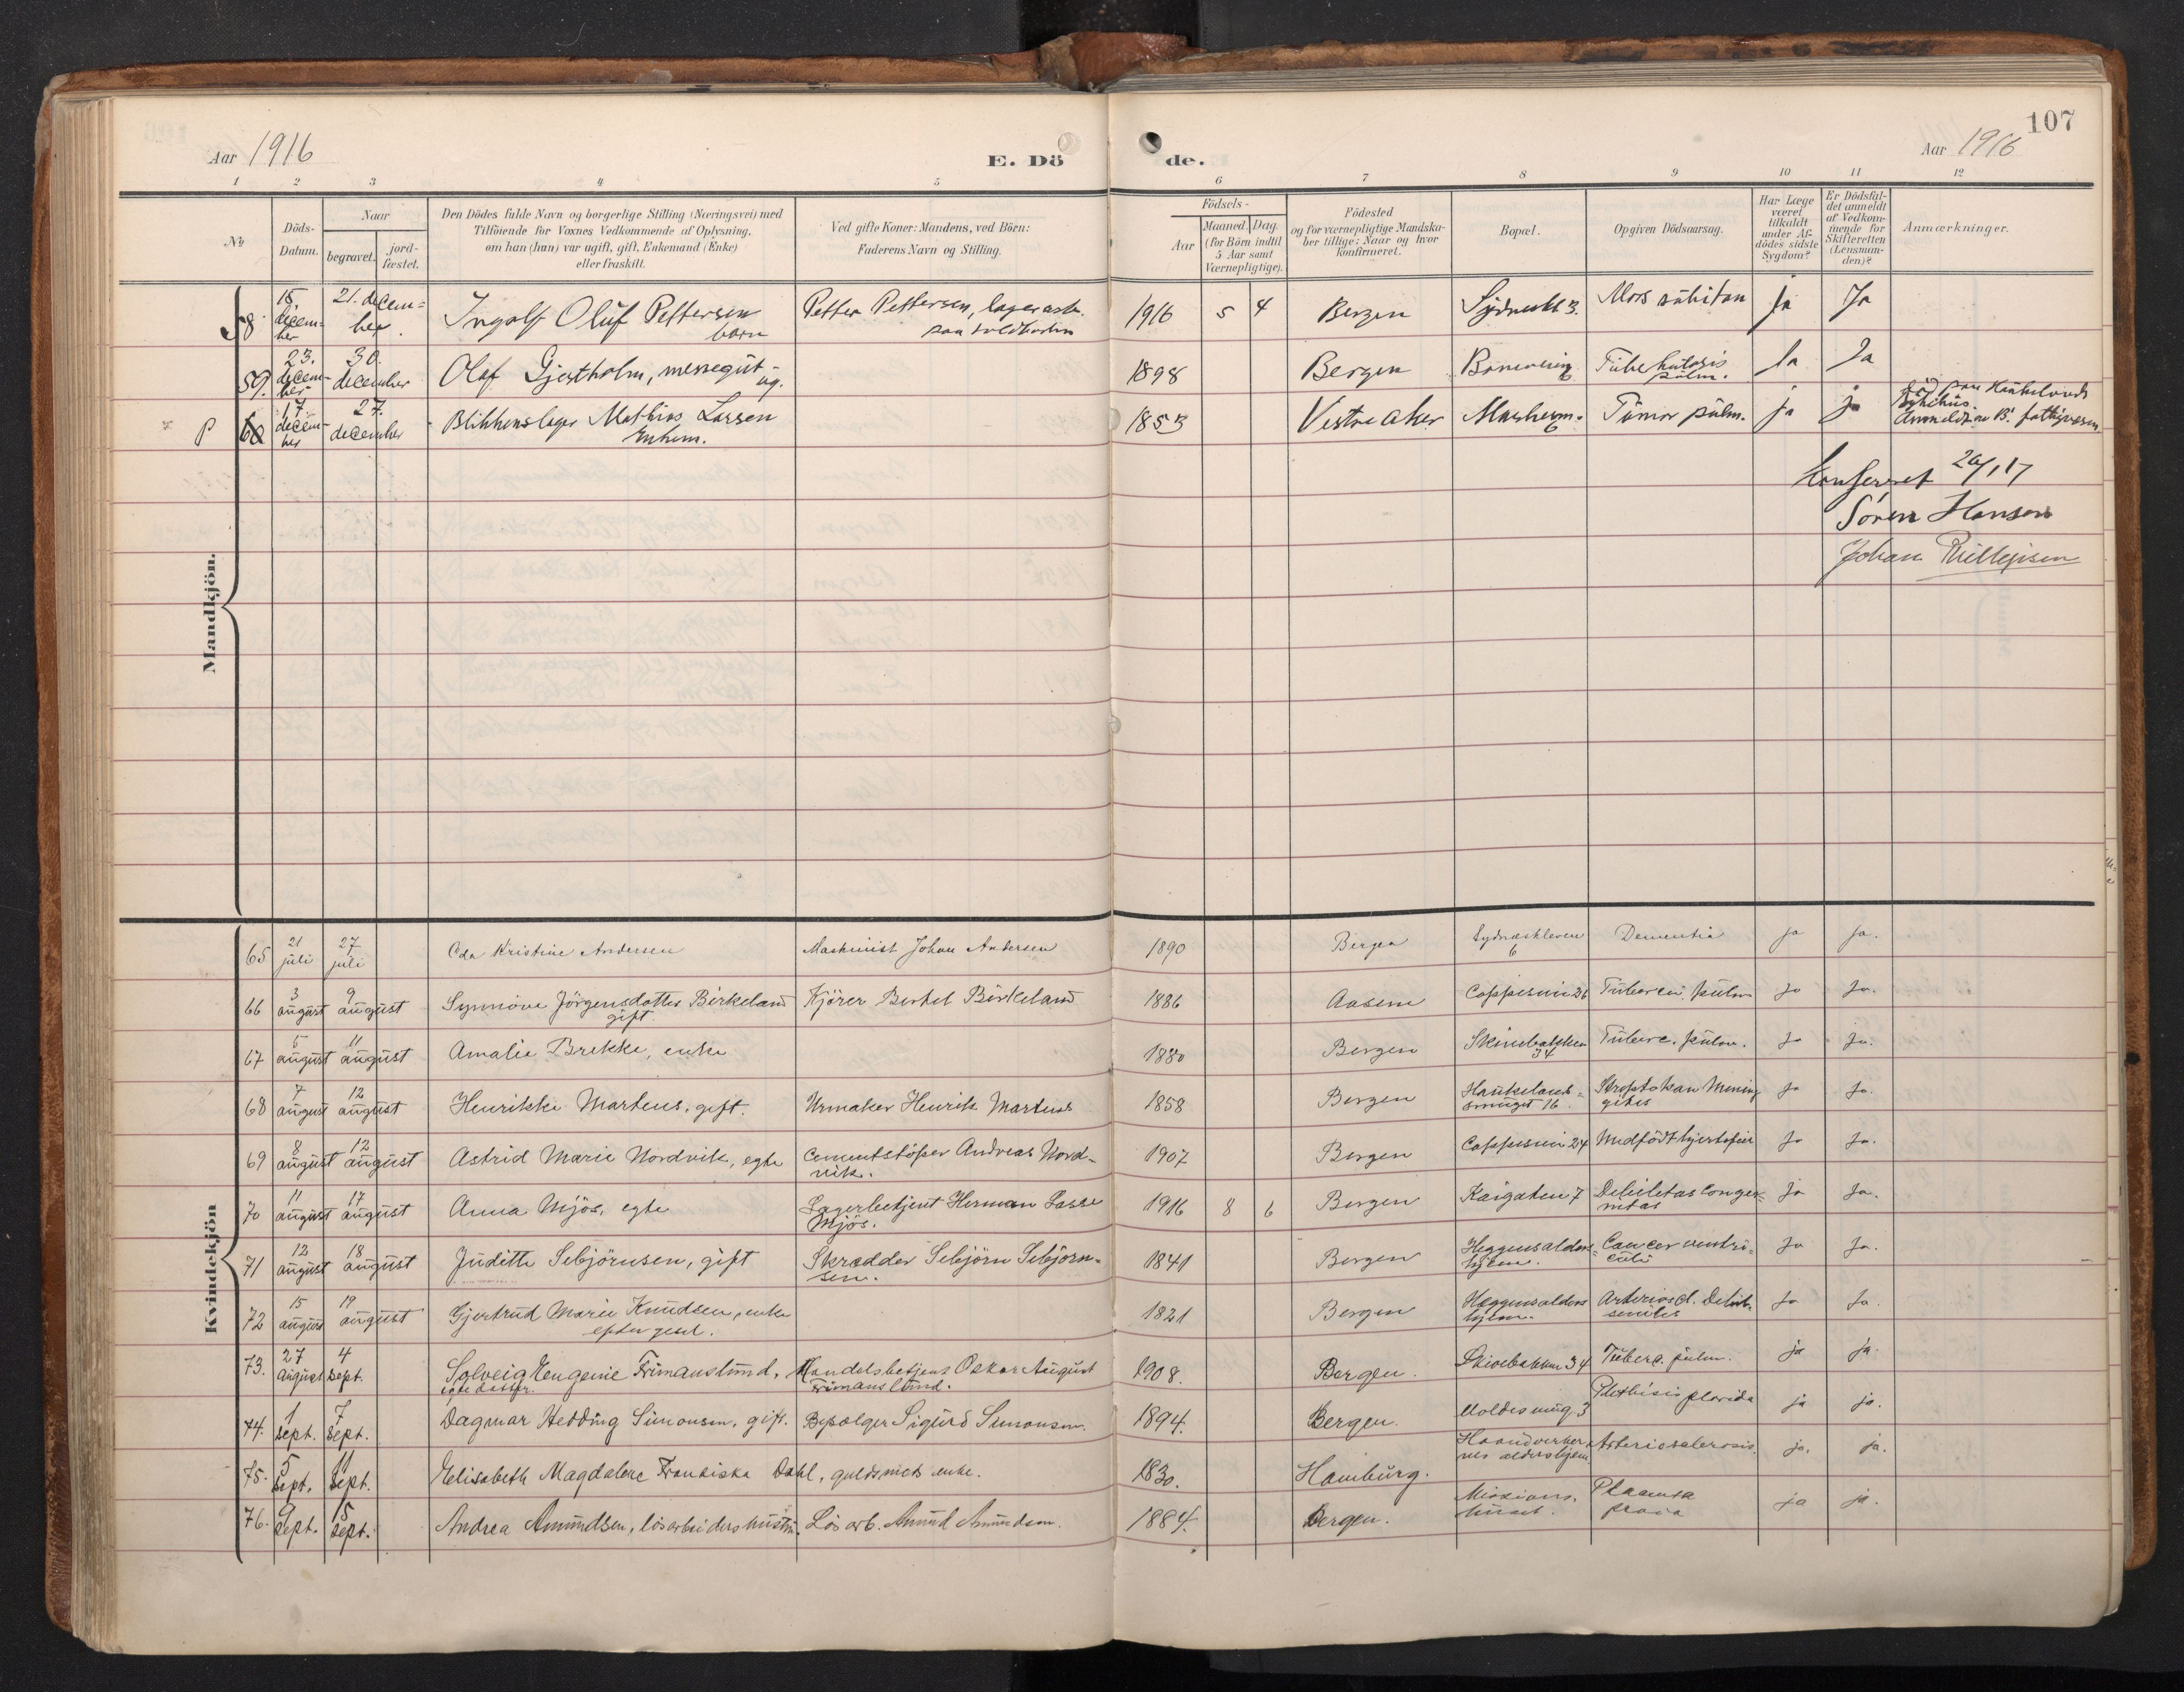 107
Aar 1916
E. Dö de.
Aar 1916
1 2 3 4 5 6 7 8 9 10 11 12
No
Döds-Datum.
Naar
begravet.
jord-fæstet.
Den Dödes fulde Navn og borgerlige Stilling (Næringsvei) med
Tilföiende for Voxnes Vedkommende af Oplysning,
om han (hun) var ugift, gift, Enkemand (Enke)
eller fraskilt.
Ved gifte Koner: Mandens, ved Börn:
Faderens Navn og Stilling.
Födsels-
Aar
Maaned. Dag.
(for Börn indtil
5 Aar samt
Værnepligtige).
Födested
og for værnepligtige Mandska-
ber tillige: Naar og hvor
konfirmeret.
Bopæl.
Opgiven Dödsaarsag.
Har Læge
været
tilkaldt
under Af-
dödes sidste
Sygdom?
Er Dödsfal-
det anmeldt
af Vedkom-
mende for
Skifteretten
(Lensman-
den)?
Anmærkninger.
Mandkjön.
58 15. decem-ber 21. decem=ber. Ingolf Oluf Pettersen barn Petter Pettersen, lagerarb. paa toldboden 1916 5 4 Bergen Mors subitan ja Ja
59. 23. decem-ber 30. december Olaf Gjestholm, messegut ug. 1898 Bergen 6 Tuberkulosis pulm. Ja Ja
P 60 17 decem-ber 27. december Blikkenslager Mathias Larsen Enkem. 1853 Vestre Aker 6 Tumor pulm. ja ja död paa Haukelands sykehus. Anmeldt av B. fattigvesen
Konferert 20/1 17
Sören Hansen
Johan
Kvindekjön
65 21 juli 27 juli Eda Kristine Andersen Maskinist Johan Andersen 1890 Bergen Sydneskleven 6 Dementia ja ja.
66 3 august 9 august Synnöve Jörgensdotter Birkeland gift. Kjörer Bertel Birkeland 1886 Aasene 26 Tubercu. pulm Ja Ja.
67 5 august 11 august Amalie Brekke, enke 1880 Bergen Skivebakken 34 Tuberc. pulm. Ja Ja.
68 7 august 12 august Henrikke Martens, gift. Urmaker Henrik Martens 1858 Bergen Haukelands=smuget 16. Mening gitis Ja Ja.
69 8 august 12 august Astrid Marie Nordvik, egte Cementstöper Andreas Nord-vik. 1907 Bergen 24 Medfödt hjertefeil Ja Ja.
70 11 august 17 august Anna Mjös, egte Lagerbetjent Herman Lasse Mjös. 1916 8 6 Bergen Kaigaten 7 Debilitas Ja Ja.
71 12 august 18 august Juditte Sebjörnsen, gift Skrædder Sebjörn Sebjörn=sen. 1841 Bergen Heggensalders=hjem. Cancer ventri=culi Ja Ja.
72 15 august 19 august Gjertrud Marie Knudsen, enke efter gesel. 1821 Bergen Heggensalders hjem. Arterioscl. Debilit. senilis Ja Ja.
73. 27 august 4 sept. Solveig Eugenie Frimanslund, egte datter. Handelsbetjent Oskar August Frimanslund. 1908. Bergen. Skivebakken 34 Tuberc. pulm. ja ja.
74. 1 sept. 7 sept. Dagmar Hedding Simonsen, gift. Sigurd Simonsen. 1894. Bergen. Moldesmug. 3 Phthisis florida ja ja.
75. 5 sept. 11 sept. Elisabeth Magdalene Franziska Dahl, guldsmeds enke. 1830. Hamburg. Haandverker nes aldershjem Arteriosclerosis. ja. ja.
76. 9 sept. 15 sept. Andrea Amundsen, lösarbeiders hustru. Lös arb. Amund Amundsen. 1884. Bergen. Missions. huset. Placenta prævia ja ja.